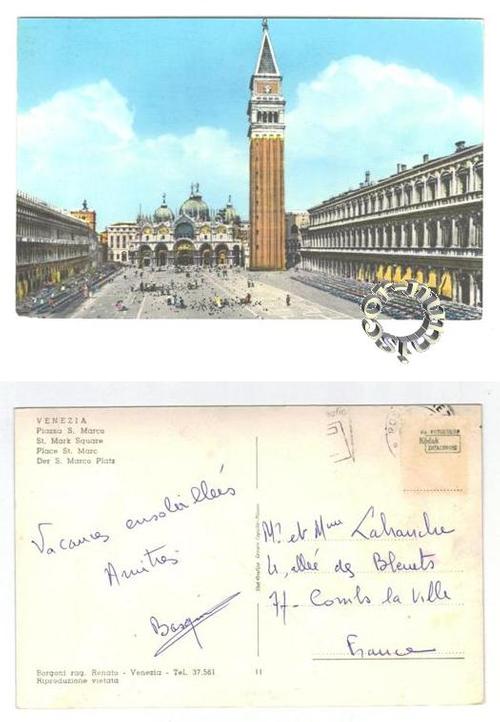 VENEZIA
Piazza S. Marco
St. Mark Square
Place St. Marc
Der S. Marco Platz
Vacances ensoleillées
Amitiés
Kodak
Mr et Mme Lahanche
4, allée des Bleuets
77 - Combs la Ville
France
Borgoni rag. Renato - Venezia - Tel. 37.561
Riproduzione vietata
11